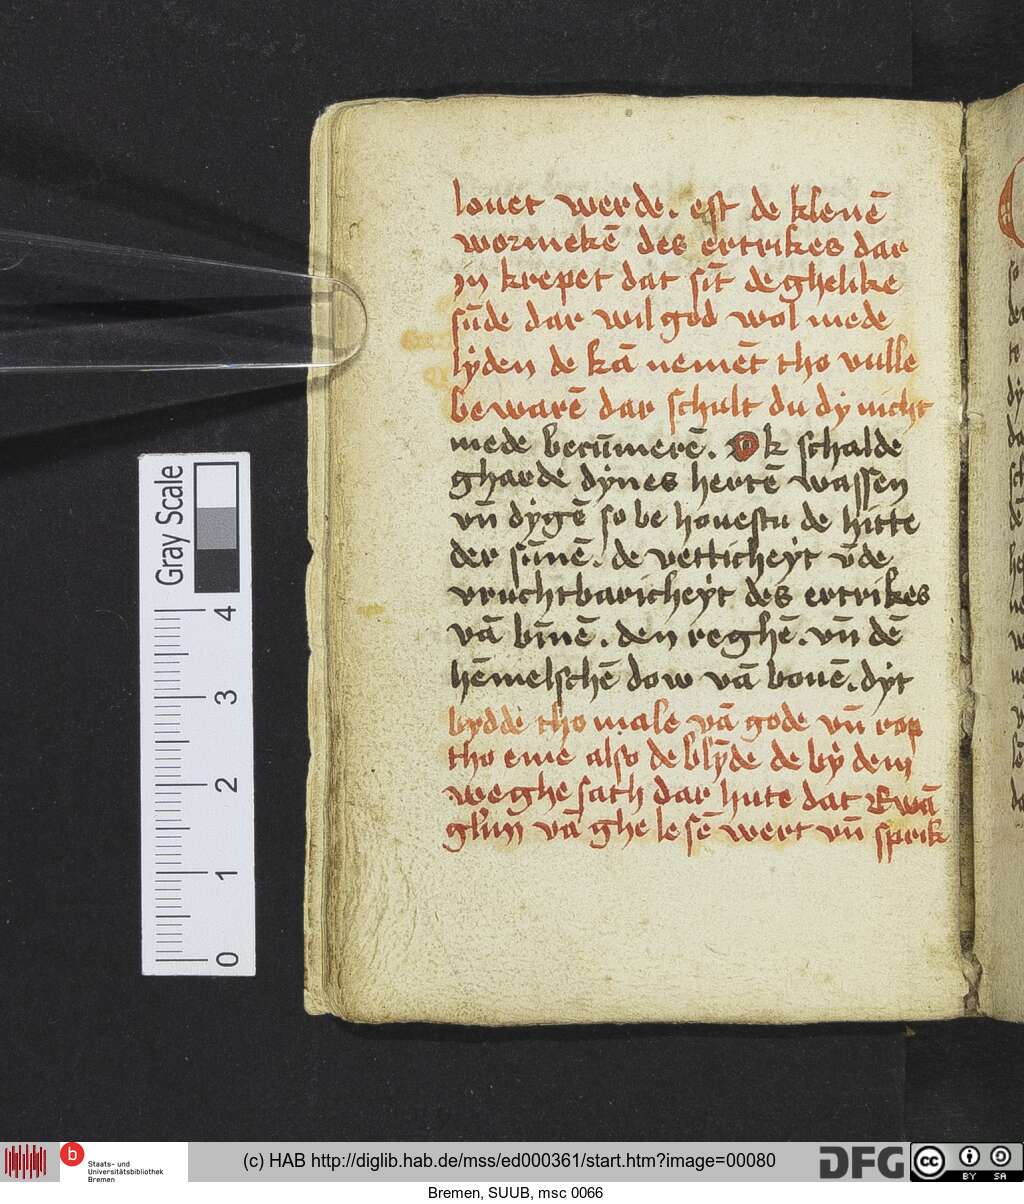 louet werde. est de klenē
wormekē des ertrikes dar
in krepet dat sīt de ghelike
sūde dar wil god wol mede
lyden de kā nemēt tho vulle
be warē dar schult du dy nicht
mede becūmerē. Ok schal de
gharde dynes hertē wassen
vn̄ dygē so be houestu de hitte
der sūnē. de vetticheyt vn̄ de
vruchtbaricheyt des ertrikes
vā bīnē. den reghē. vn̄ dē
hēmelschē dow vā bouē. dyt
bydde tho male vā gode vn̄ rop
tho eme also de blȳde de by dem
weghe sath dar hute dat Ewā
gl'iū vā ghe le sē wert vn̄ sprik
Gray Scale
4
3
2
1
0
b
Staats- und
Universitätsbibliothek
Bremen
(c) HAB http://diglib.hab.de/mss/ed000361/start.htm?image=00080
DFG
cc
BY SA
Bremen, SUUB, msc 0066